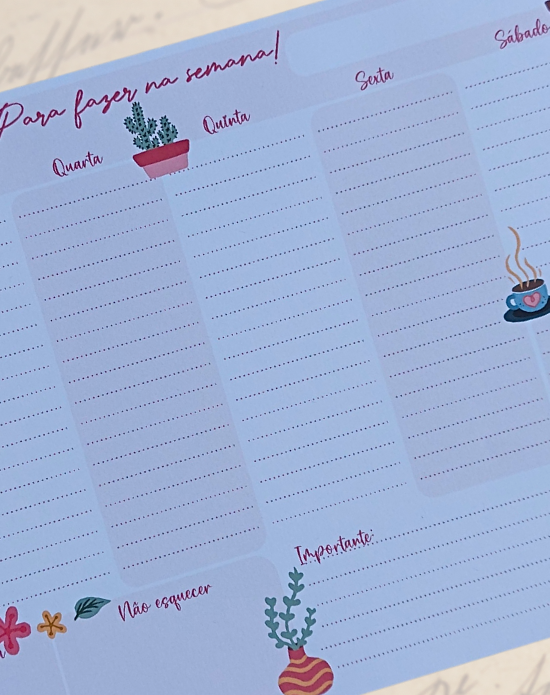 Para fazer na semana!
Quarta
Quinta
Sexta
Sábado
Importante:
Não esquecer